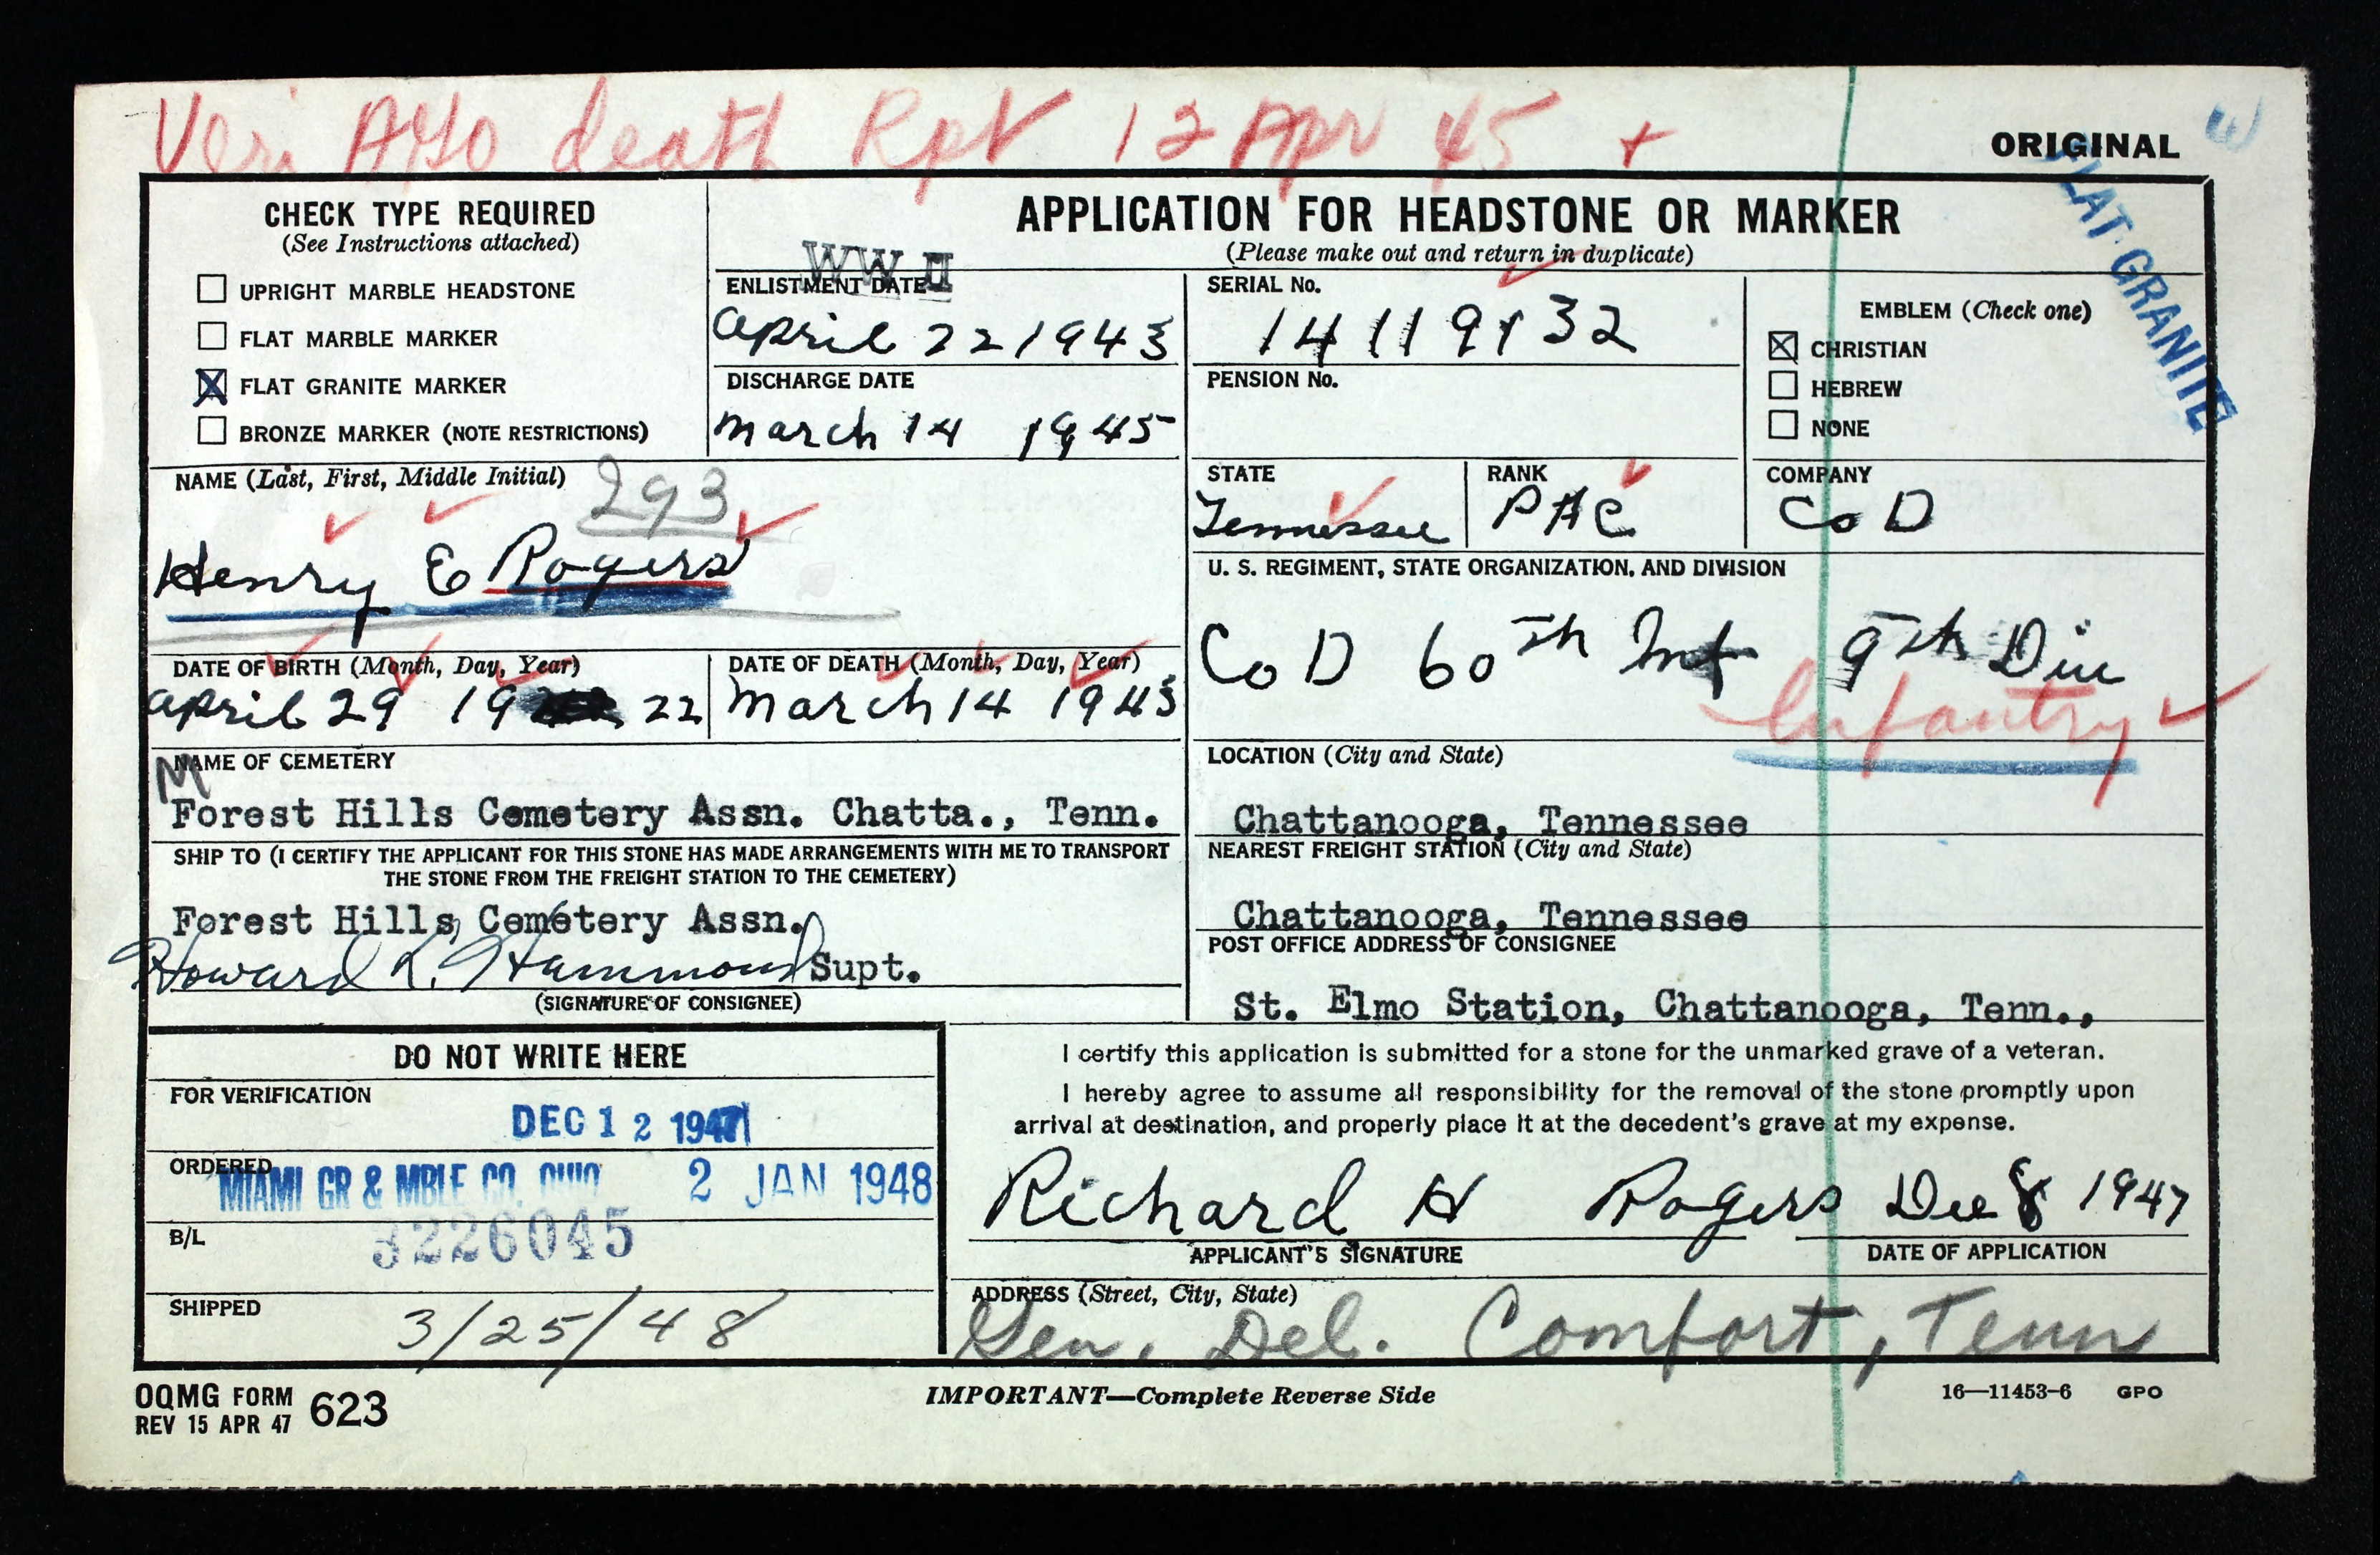 Veri AGO death Rpt 12 Apr 45 +
ORIGINAL
FLAT GRANITE
CHECK TYPE REQUIRED
(See Instructions attached)
UPRIGHT MARBLE HEADSTONE
FLAT MARBLE MARKER
X FLAT GRANITE MARKER
BRONZE MARKER (NOTE RESTRICTIONS)
APPLICATION FOR HEADSTONE OR MARKER
(Please make out and return in duplicate)
WW II
ENLISTMENT DATE
April 22 1943
DISCHARGE DATE
March 14 1945
SERIAL No.
14119132
PENSION No.
EMBLEM (Check one)
X CHRISTIAN
HEBREW
NONE
NAME (Last, First, Middle Initial)
293
Henry E Rogers
STATE
Tennessee
RANK
PFC
COMPANY
Co D
U. S. REGIMENT, STATE ORGANIZATION, AND DIVISION
Co D 60th Inf 9th Div
Infantry
DATE OF BIRTH (Month, Day, Year)
April 29 19 22
DATE OF DEATH (Month, Day, Year)
March 14 1945
M
NAME OF CEMETERY
Forest Hills Cemetery Assn. Chatta., Tenn.
LOCATION (City and State)
Chattanooga, Tennessee
SHIP TO (I CERTIFY THE APPLICANT FOR THIS STONE HAS MADE ARRANGEMENTS WITH ME TO TRANSPORT
THE STONE FROM THE FREIGHT STATION TO THE CEMETERY)
Forest Hills Cemetery Assn.
Howard L. Hammond Supt.
(SIGNATURE OF CONSIGNEE)
NEAREST FREIGHT STATION (City and State)
Chattanooga, Tennessee
POST OFFICE ADDRESS OF CONSIGNEE
St. Elmo Station, Chattanooga, Tenn.,
DO NOT WRITE HERE
FOR VERIFICATION
DEC 12 1947
ORDERED
MIAMI GR & MBLE CO. OHIO 2 JAN 1948
B/L
3226045
SHIPPED
3/25/48
I certify this application is submitted for a stone for the unmarked grave of a veteran.
I hereby agree to assume all responsibility for the removal of the stone promptly upon
arrival at destination, and properly place it at the decedent's grave at my expense.
Richard H Rogers Dec 8 1947
APPLICANT'S SIGNATURE
DATE OF APPLICATION
ADDRESS (Street, City, State)
Gen. Del. Comfort, Tenn
OQMG FORM 623
REV 15 APR 47
IMPORTANT—Complete Reverse Side
16—11453-6 GPO